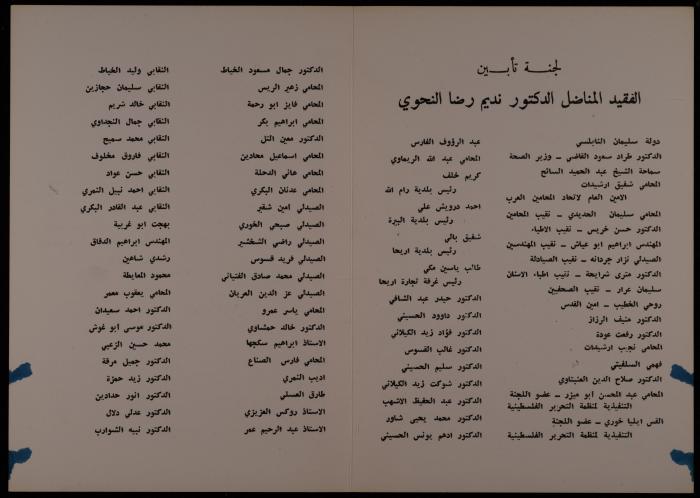 لجنة تأبين
الفقيد المناضل الدكتور نديم رضا النحوي
دولة سليمان النابلسي
الدكتور طراد سعود القاضي ــ وزير الصحة
سماحة الشيخ عبد الحميد السائح
المحامي شفيق ارشيدات
الامين العام لاتحاد المحامين العرب
المحامي سليمان الحديدي ــ نقيب المحامين
الدكتور حسن خريس ــ نقيب الاطباء
المهندس ابراهيم ابو عياش ــ نقيب المهندسين
الصيدلي نزار جردانه ــ نقيب الصيادلة
الدكتور متري شرايحة ــ نقيب اطباء الاسنان
سليمان عرار ــ نقيب الصحفيين
روحي الخطيب ــ امين القدس
الدكتور منيف الرزاز
الدكتور رفعت عودة
المحامي نجيب ارشيدات
فهمي السلفيتي
الدكتور صلاح الدين العنبتاوي
المحامي عبد المحسن ابو ميزر ــ عضو اللجنة
التنفيذية لمنظمة التحرير الفلسطينية
القس ايليا خوري ــ عضو اللجنة
التنفيذية لمنظمة التحرير الفلسطينية
عبد الرؤوف الفارس
المحامي عبد الله الريماوي
كريم خلف
رئيس بلدية رام الله
احمد درويش علي
رئيس بلدية البيرة
شفيق بالي
رئيس بلدية اريحا
طالب ياسين مكي
رئيس غرفة تجارة اريحا
الدكتور حيدر عبد الشافي
الدكتور داوود الحسيني
الدكتور فؤاد زيد الكيلاني
الدكتور غالب القسوس
الدكتور سليم الحسيني
الدكتور شوكت زيد الكيلاني
الدكتور عبد الحفيظ الاشهب
الدكتور محمد يحيى شاور
الدكتور ادهم يونس الحسيني
الدكتور جمال مسعود الخياط
المحامي زهير الريس
المحامي فايز ابو رحمة
المحامي ابراهيم بكر
الدكتور معين التل
المحامي اسماعيل محادين
المحامي هاني الدحلة
المحامي عدنان البكري
الصيدلي امين شقير
الصيدلي صبحي الخوري
الصيدلي راضي الشخشير
الصيدلي فريد قسوس
الصيدلي محمد صادق الفتياني
الصيدلي عز الدين العريان
المحامي ياسر عمرو
الدكتور خالد حمشاوي
الاستاذ ابراهيم سكجها
المحامي فارس الصناع
اديب النمري
طارق العسلي
الاستاذ روكس العزيزي
الاستاذ عبد الرحيم عمر
النقابي وليد الخياط
النقابي سليمان حجازين
النقابي خالد شريم
النقابي جمال النجداوي
النقابي محمد سميح
النقابي فاروق مخلوف
النقابي حسن عواد
النقابي احمد نبيل النمري
النقابي عبد القادر البكري
بهجت ابو غربية
المهندس ابراهيم الدقاق
رشدي شاهين
محمود المعايطة
المحامي يعقوب معمر
الدكتور احمد سعيدان
الدكتور موسى ابو غوش
محمد حسين الزعبي
الدكتور جميل مرقة
الدكتور زيد حمزة
الدكتور انور حدادين
الدكتور عدلي دلال
الدكتور نبيه الشوارب